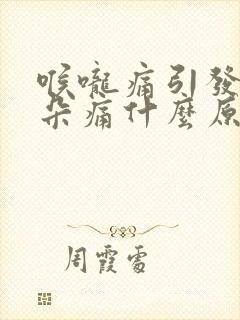 喉嚨痛引發
朵痛什麼原
周霞雲